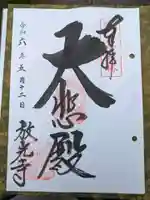 奉拝
大悲殿
令和六年五月十二日
放光寺